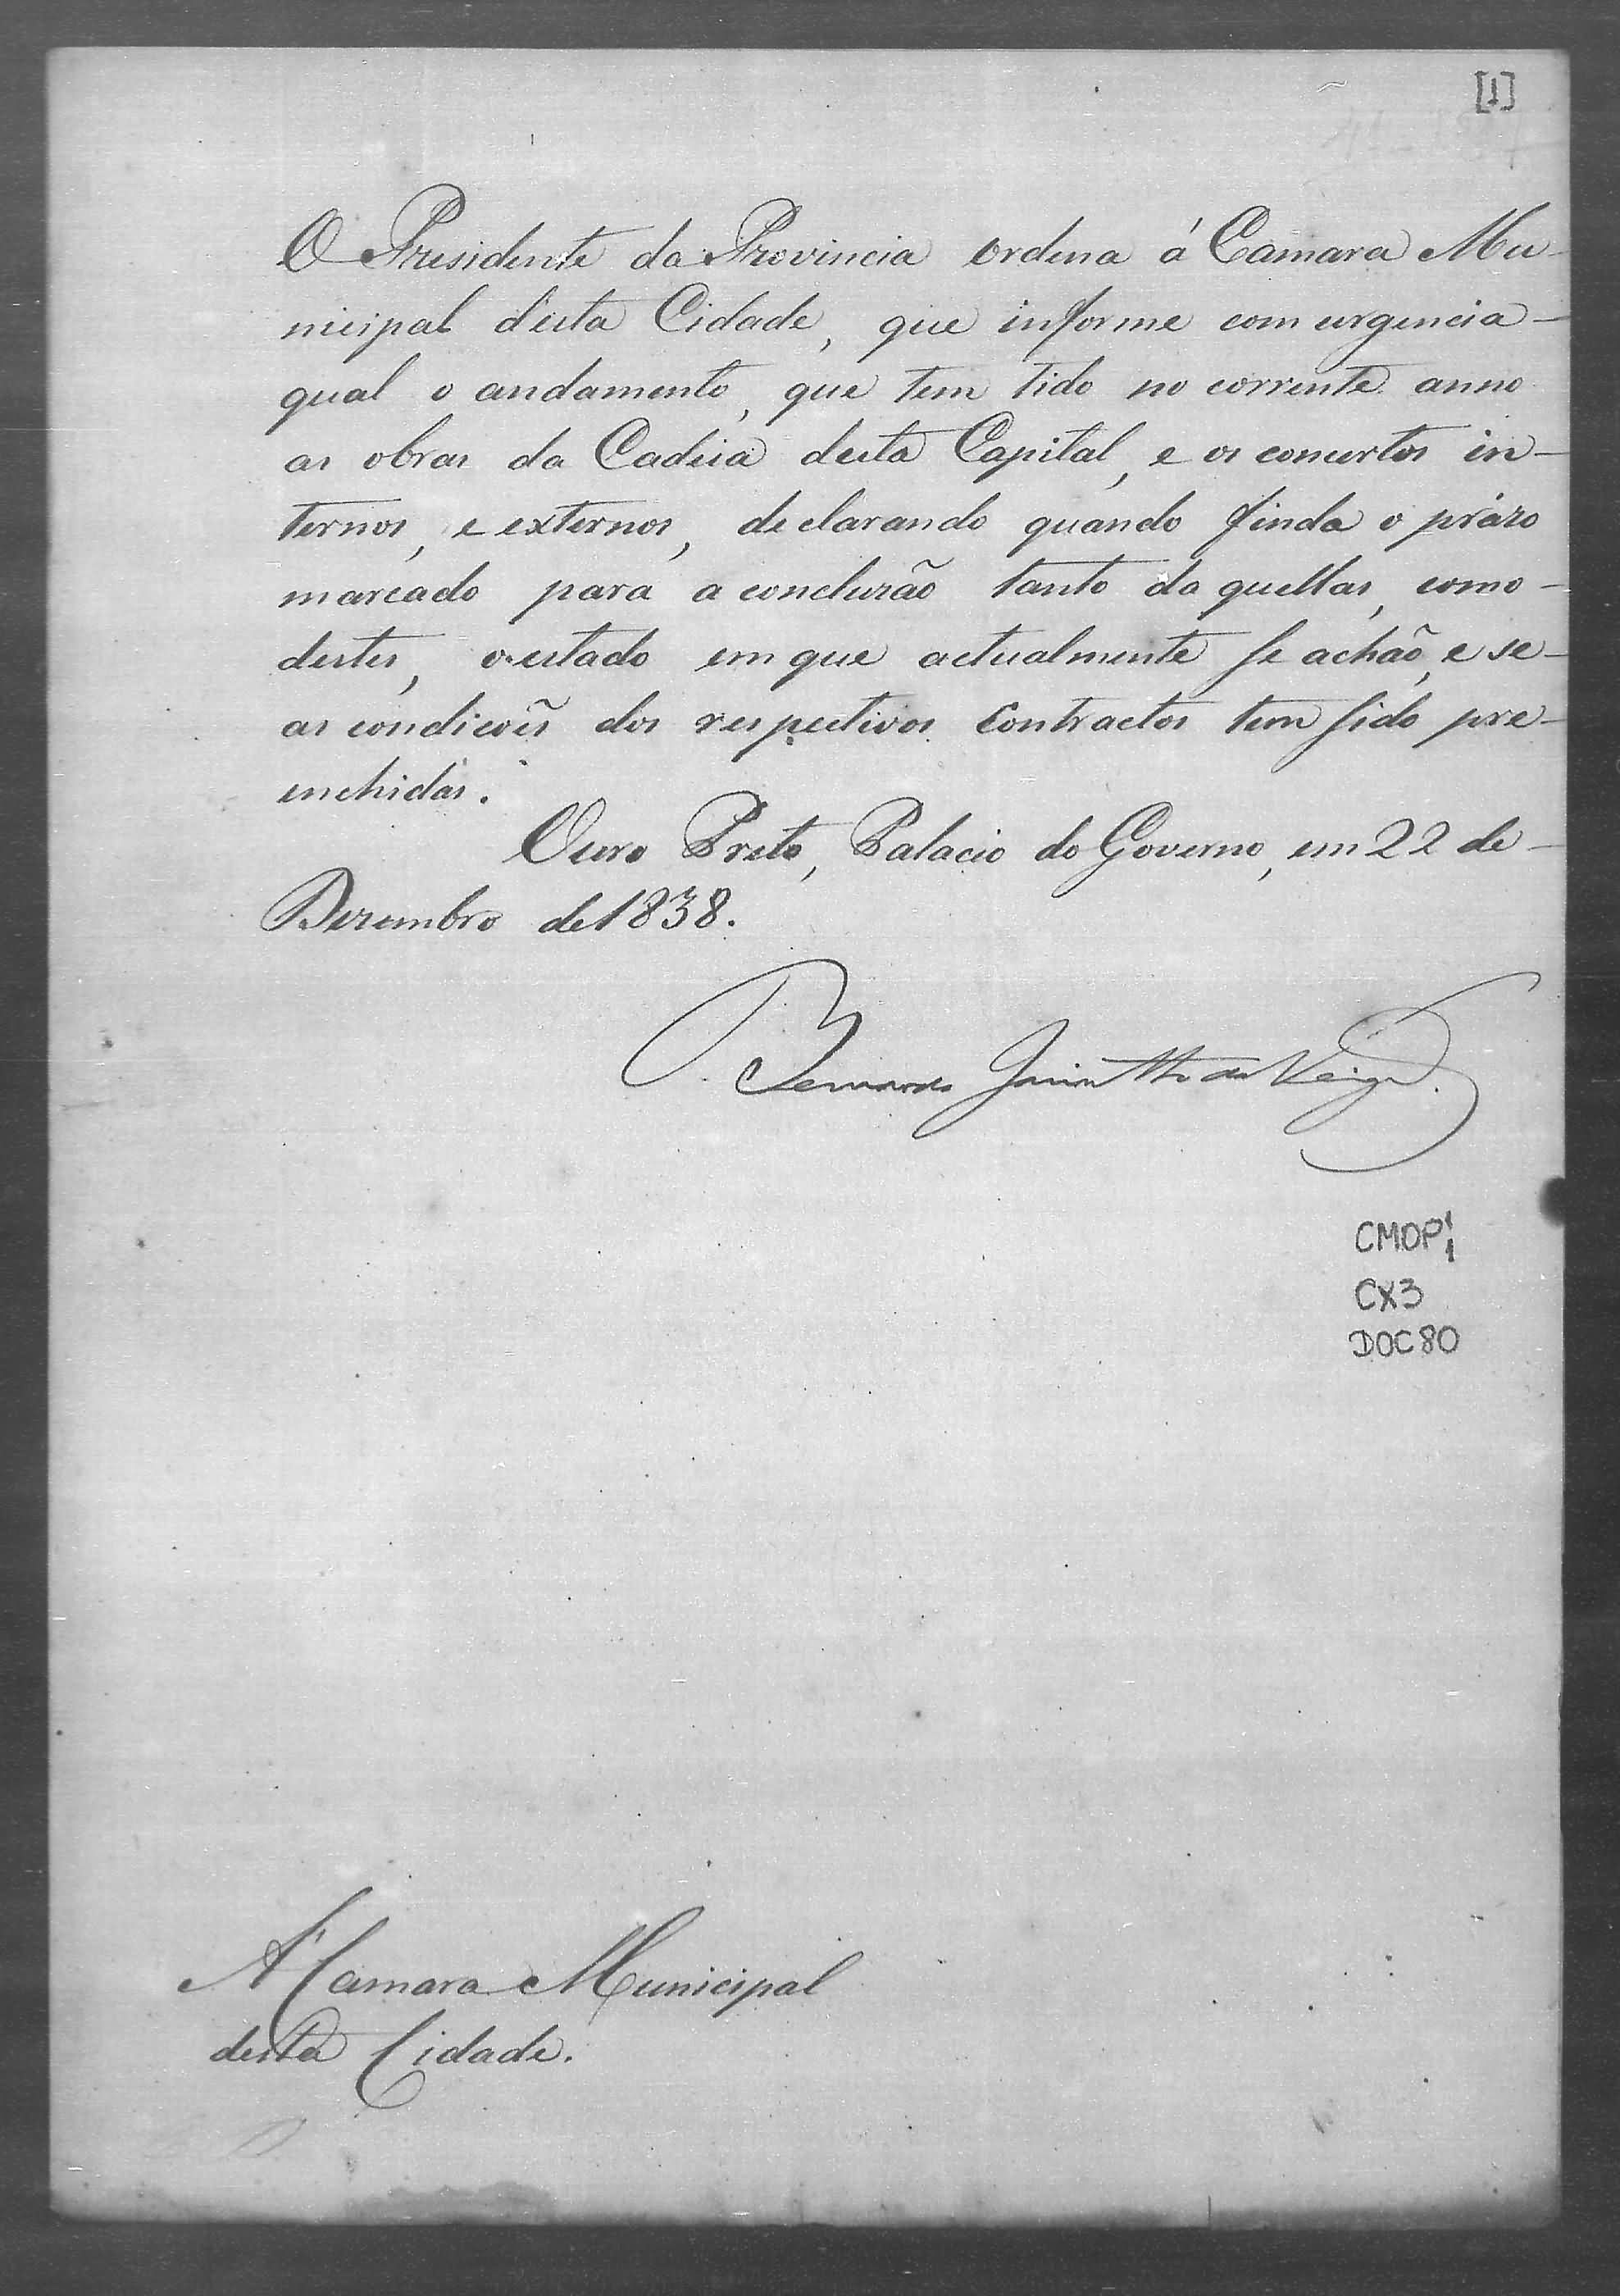 [1]
O Presidente da Provincia ordena á Camara Mu-
nicipal d'esta Cidade, que informe com urgencia -
qual o andamento, que tem tido no corrente anno
as obras da Cadeia desta Capital, e os concertos in-
ternos, e externos, declarando quando finda o prazo
marcado para a concluzão tanto da quellas, como -
destes, o estado em que actualmente se achão, e se -
as condicoẽs dos respectivos Contractos tem sido pre-
enchidas.
Ouro Preto, Palacio do Governo, em 22 de -
Dezembro de 1838.
Bernardo Jacintho da Veiga.
CMOP 1/1
CX3
DOC 80
A' Camara Municipal
desta Cidade.